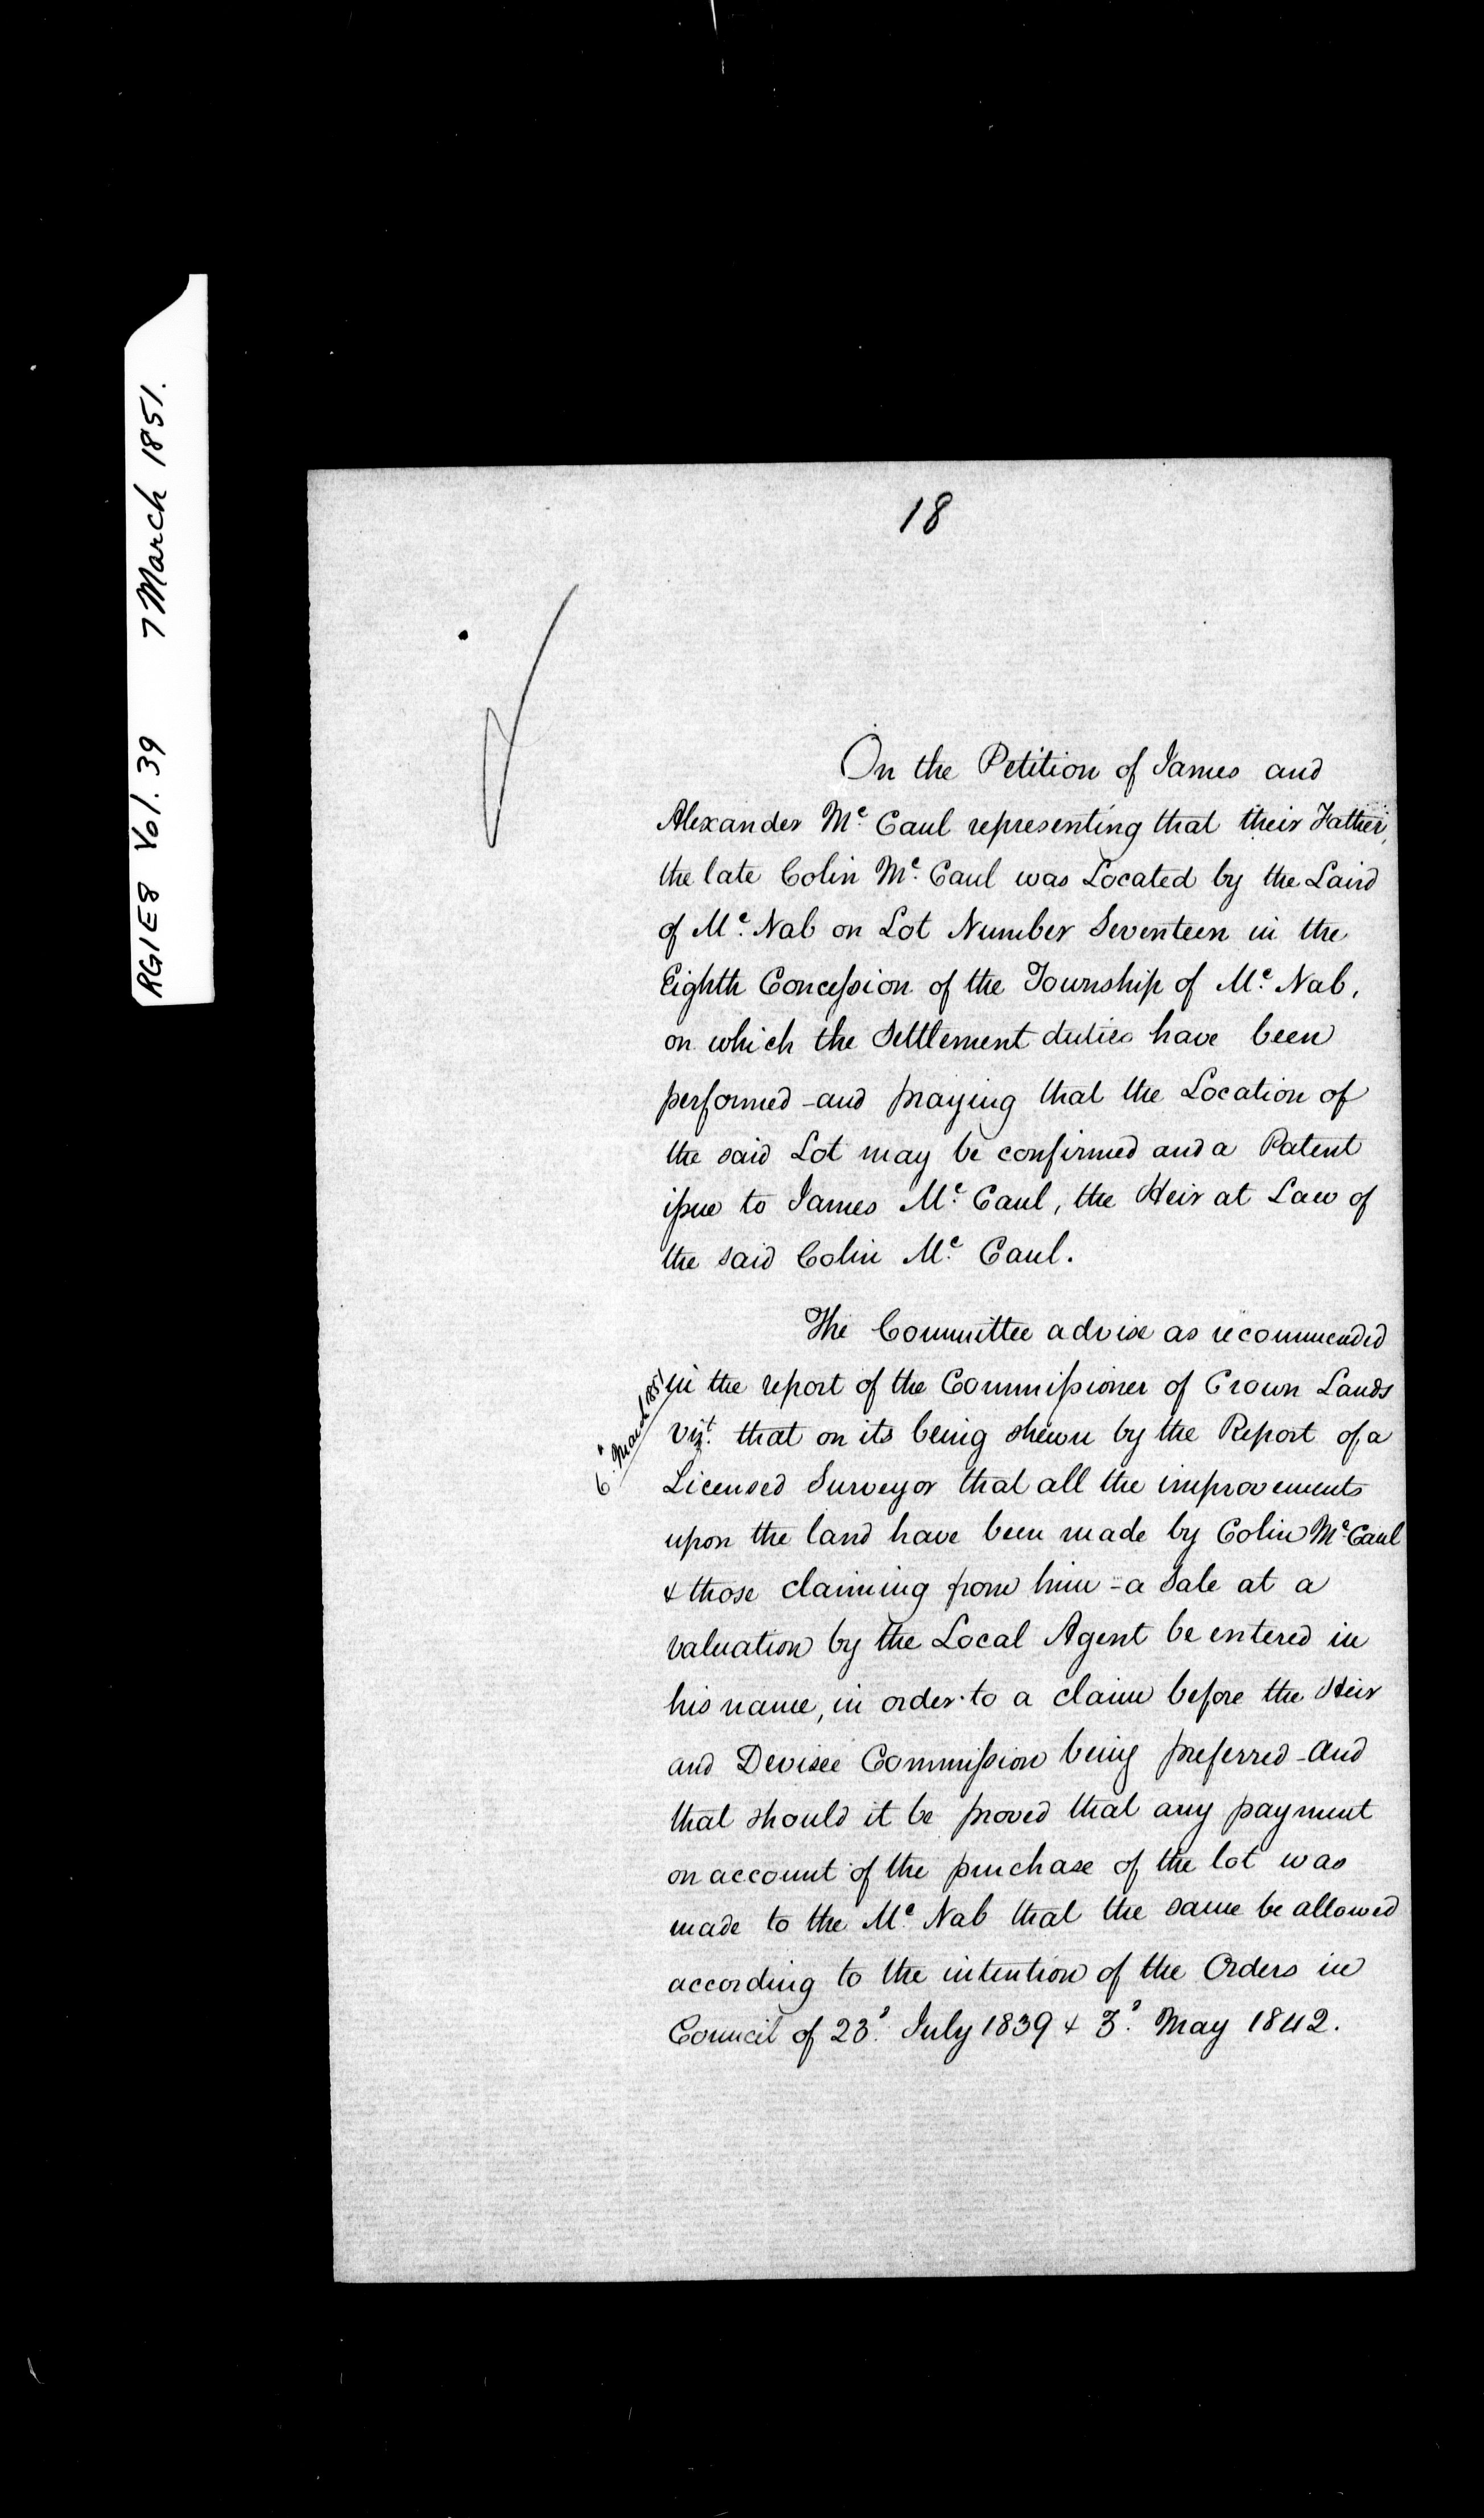 RG1E8 Vol. 39 7 March 1851.
18
On the Petition of James and
Alexander Mc. Caul representing that their Father,
the late Colin Mc. Caul was Located by the Laird
of Mc. Nab on Lot Number Seventeen in the
Eighth Concession of the Township of Mc. Nab,
on which the Settlement duties have been
performed - and praying that the Location of
the said Lot may be confirmed and a Patent
issue to James Mc. Caul, the Heir at Law of
the said Colin Mc. Caul.
The Committee advise as recommended
6th. March 1851
in the report of the Commissioner of Crown Lands
Vizt. that on its being shewn by the Report of a
Licensed Surveyor that all the improvements
upon the land have been made by Colin Mc. Caul
& those claiming from him - a Sale at a
valuation by the Local Agent be entered in
his name, in order to a claim before the Heir
and Devisee Commission being preferred - And
that should it be proved that any payment
on account of the purchase of the lot was
made to the Mc. Nab that the same be allowed
according to the intention of the Orders in
Council of 23d. July 1839 & 3d. May 1842.